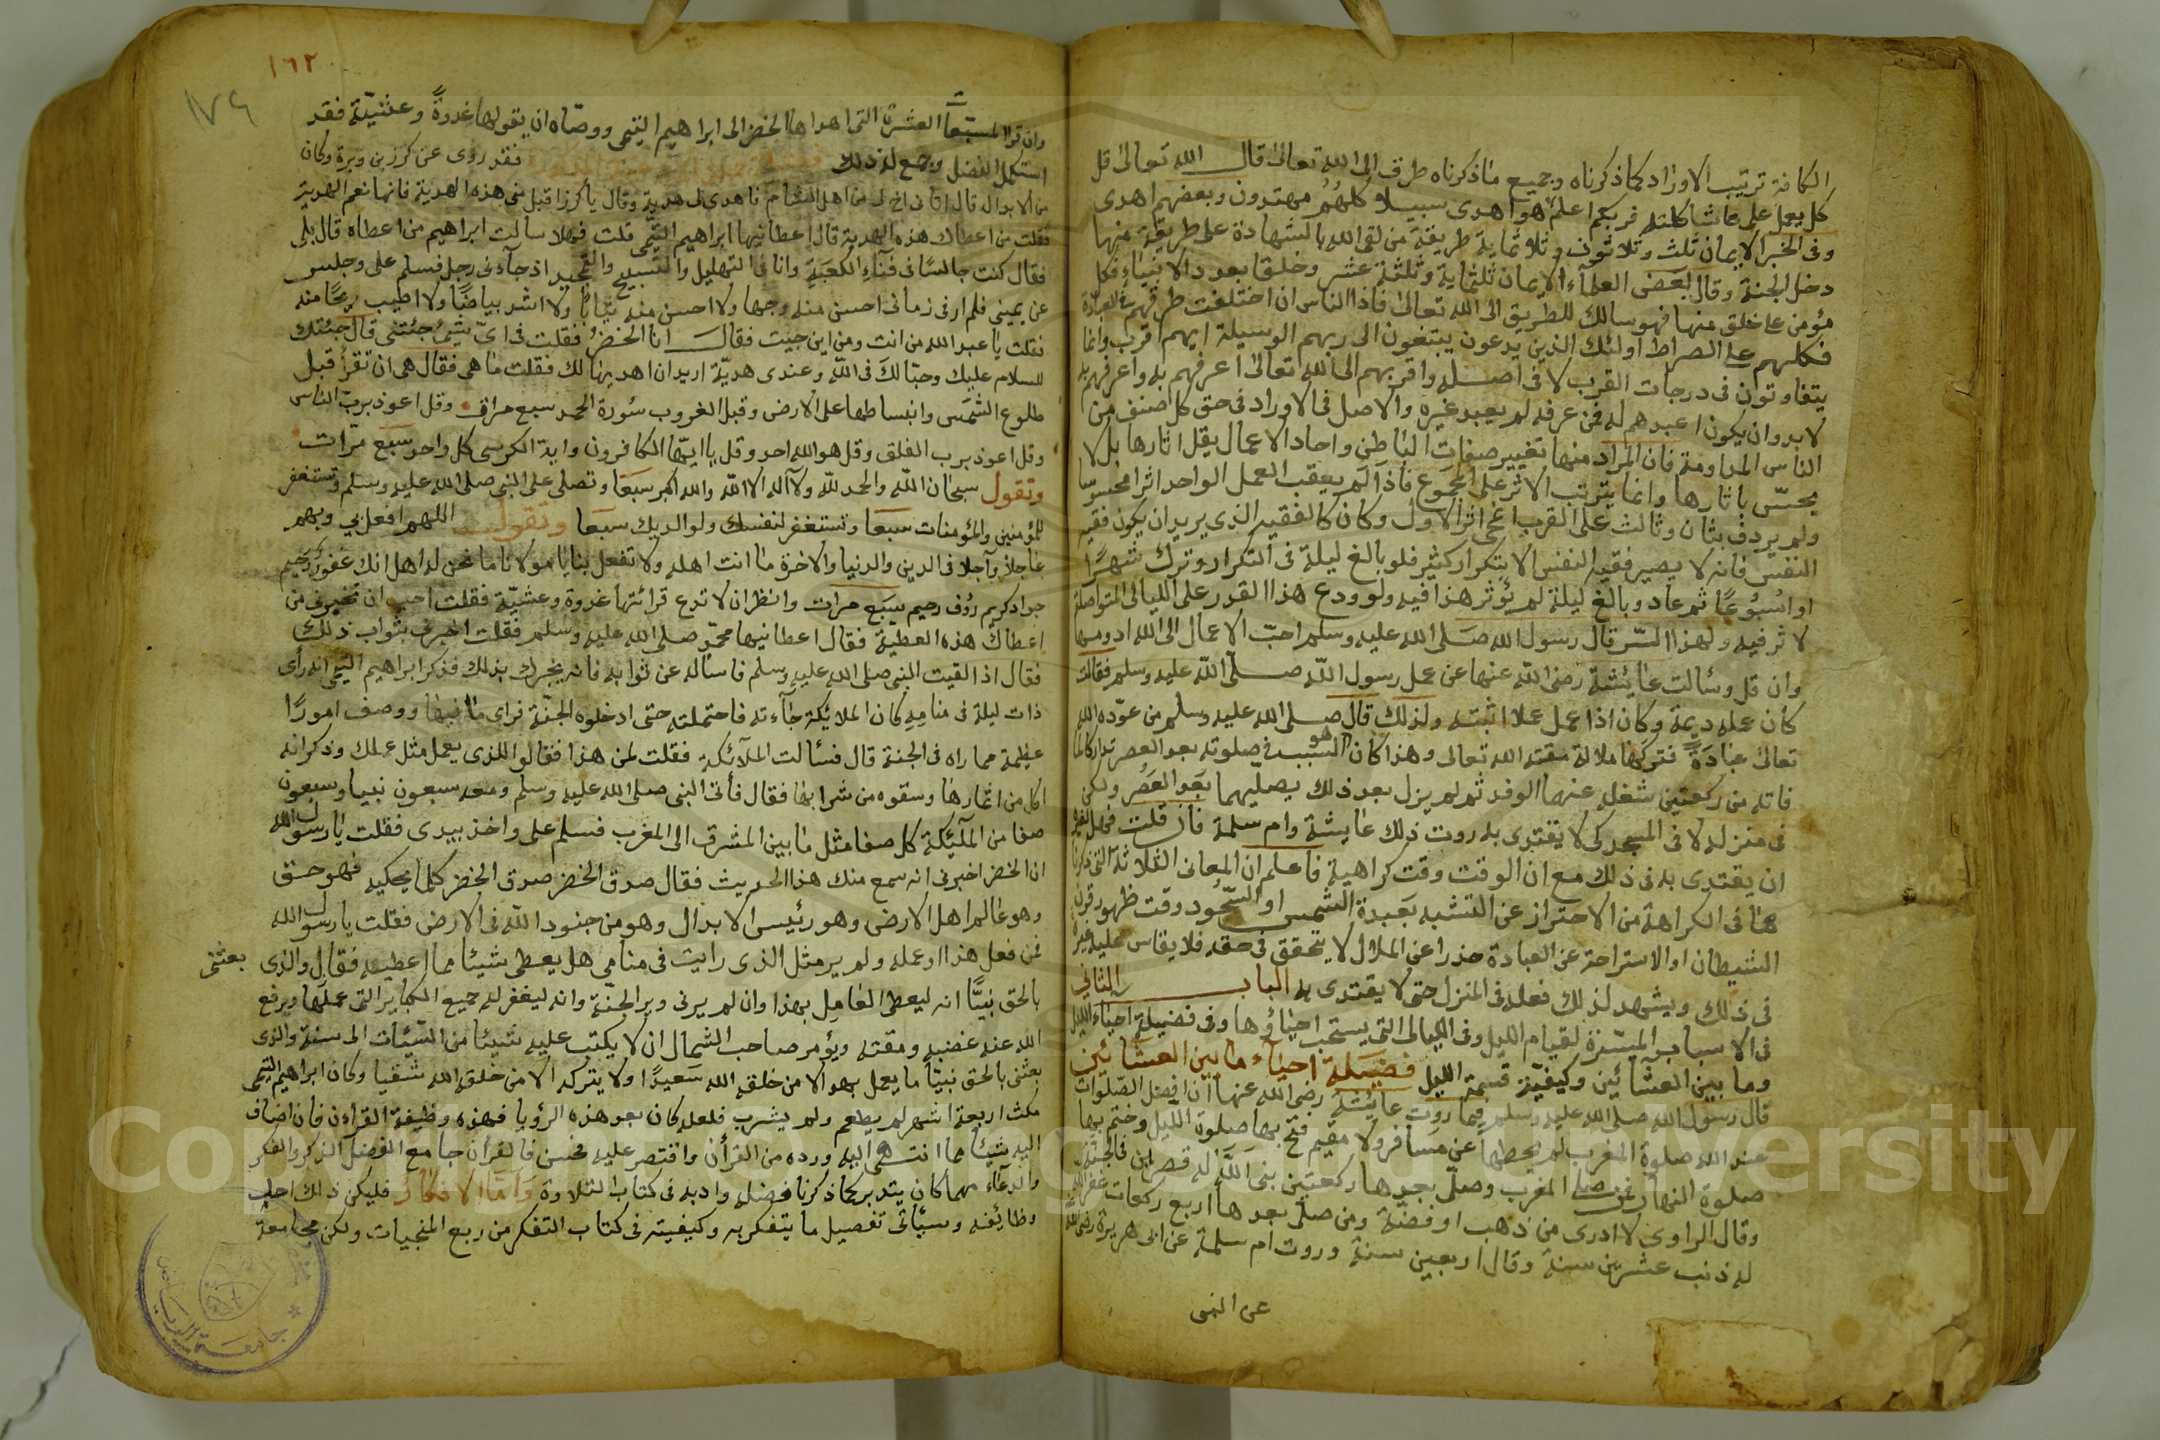 الكافة ترتيب الاوراد كما ذكرناه وجميع ما ذكرناه طرق الى الله تعالى قال الله تعالى قل
كل يعمل على شاكلته فربكم اعلم بمن هو اهدى سبيلا وكلهم مهتدون وبعضهم اهدى
وفي الخبر الايمان ثلث وثلاثون وثلاثماية طريقة من لقى الله بالشهادة على طريقة منها
دخل الجنة وقال بعض العلماء الايمان ثلثماية وثلثة عشر وخلقا بعدد الانبياء فكل
مؤمن على خلق منها فهو سالك للطريق الى الله تعالى فاذا الناس ان اختلفت طرقهم في العبادة
فكلهم على الصراط اولئك الذين يدعون يبتغون الى ربهم الوسيلة ايهم اقرب وانما
يتفاوتون في درجات القرب لا في اصله واقربهم الى الله تعالى اعرفهم به واعرفهم به
لا بد وان يكون اعبدهم له فمن عرفه لم يعبد غيره والاصل في الاوراد في حق كل صنف من
الناس المداومة فان المراد منها تغيير صفات الباطن واحاد الاعمال يقل اثارها بل لا
يحس باثارها وانما يترتب الاثر على المجموع فاذا لم يعقب العمل الواحد اثرا محسوسا
ولم يردف بثان وثالث على القرب انمحى اثر الاول وكان كالفقيه الذي يريد ان يكون فقيه
النفس فانه لا يصير فقيه النفس الا بتكرار كثير فلو بالغ ليلة في التكرار وترك شهرا
او اسبوعا ثم عاد وبالغ ليلة لم يؤثر هذا فيه ولو ودع هذا القدر على الليالي المتواصلة
لاثر فيه ولهذا السر قال رسول الله صلى الله عليه وسلم احب الاعمال الى الله ادومها
وان قل وسالت عايشة رضي الله عنها عن عمل رسول الله صلى الله عليه وسلم فقالت
كان عمله ديمة وكان اذا عمل عملا اثبته ولذلك قال صلى الله عليه وسلم من عوده الله
تعالى عبادة فتركها ملالة مقته الله تعالى وهذا كان هو السبب في صلوته بعد العصر تداركا لما
فاته من ركعتين شغله عنها الوفد ثم لم يزل بعد ذلك يصليهما بعد العصر ولكن
في منزله لا في المسجد كي لا يقتدى به روت ذلك عايشة وام سلمة فان قلت فهل لغيره
ان يقتدى به في ذلك مع ان الوقت وقت كراهية فاعلم ان المعاني الثلاثة التي ذكرنا
ها في الكراهة من الاحتراز عن التشبه بعبدة الشمس او السجود وقت ظهور قرن
الشيطان او الاستراحة عن العبادة حذرا عن الملال لا يتحقق في حقه فلا يقاس عليه غيره
في ذلك ويشهد لذلك فعله في المنزل حتى لا يقتدى به الباب الثاني
في الاسباب الميسرة لقيام الليل وفي الليالي التي يستحب احياؤها وفي فضيلة احياء الليل
وما بين العشائين وكيفية قسمة الليل فضيلة احياء ما بين العشائين
قال رسول الله صلى الله عليه وسلم فيما روت عايشة رضي الله عنها ان افضل الصلوات
عند الله صلوة المغرب لم يحطها عن مسافر ولا مقيم فتح بها صلوة الليل وختم بها
صلوة النهار فمن صلى المغرب وصلى بعدها ركعتين بنى الله له قصرين في الجنة
وقال الراوي لا ادرى من ذهب او فضة ومن صلى بعدها اربع ركعات غفر الله
له ذنب عشرين سنة وقال اربعين سنة وروت ام سلمة عن ابي هريرة رضي الله
عن النبي
١٦٢
١٧٤
وان قرا المسبعات العشرة التي اهداها الخضر الى ابراهيم التيمي ووصاه ان يقولها غدوة وعشية فقد
استكمل الفضل وجمع له ذلك فقد روى عن كرز بن وبرة وكان
من الابدال قال اتاني اخ لي من اهل الشام فاهدى لي هدية وقال يا كرز اقبل مني هذه الهدية فانها نعم الهدية
فقلت من اعطاك هذه الهدية قال اعطانيها ابراهيم التيمي قلت فهلا سالت ابراهيم من اعطاه قال بلى
فقال كنت جالسا في فناء الكعبة وانا في التهليل والتسبيح والتحميد اذ جاءني رجل فسلم على وجلس
عن يميني فلم ار في زماني احسن منه وجها ولا احسن منه ثيابا ولا اشد بياضا ولا اطيب ريحا منه
فقلت يا عبد الله من انت ومن اين جيت فقال انا الخضر فقلت في اى شيء جئتني قال جئتك
للسلام عليك وحبا لك في الله وعندي هدية اريد ان اهديها لك فقلت ما هي فقال هي ان تقرأ قبل
طلوع الشمس وانبساطها على الارض وقبل الغروب سورة الحمد سبع مرات وقل اعوذ برب الناس
وقل اعوذ برب الفلق وقل هو الله احد وقل يا ايها الكافرون واية الكرسي كل واحد سبع مرات
وتقول سبحان الله والحمد لله ولا اله الا الله والله اكبر سبعا وتصلى على النبي صلى الله عليه وسلم وتستغفر
للمؤمنين والمؤمنات سبعا وتستغفر لنفسك ولوالديك سبعا وتقول اللهم افعل بي وبهم
عاجلا وآجلا في الدين والدنيا والاخرة ما انت اهله ولا تفعل بنا يا مولانا ما نحن له اهل انك غفور رحيم
جواد كريم رؤف رحيم سبع مرات وانظر ان لا تدع قرائتها غدوة وعشية فقلت احب ان تخبرني من
اعطاك هذه العطية فقال اعطانيها محمد صلى الله عليه وسلم فقلت اخبرني بثواب ذلك
فقال اذا لقيت النبي صلى الله عليه وسلم فاساله عن ثوابه فانه يخبرك بذلك فذكر ابراهيم التيمي انه رأى
ذات ليلة في منامه كان الملائكة جاءته فاحتملته حتى ادخلوه الجنة فراى ما فيها ووصف امورا
عظيمة مما راه في الجنة قال فسألت الملآئكة فقلت لمن هذا فقالوا للذى يعمل مثل عملك وذكر انه
اكل من اثمارها وسقوه من شرابها فقال فأتى النبي صلى الله عليه وسلم ومعه سبعون نبيا وسبعون
صفا من الملئكة كل صف مثل ما بين المشرق الى المغرب فسلم على واخذ بيدى فقلت يا رسول الله
ان الخضر اخبرني انه سمع منك هذا الحديث فقال صدق الخضر صدق الخضر كلما يحكيه فهو حق
وهو عالم اهل الارض وهو رئيس الابدال وهو من جنود الله في الارض فقلت يا رسول الله
فمن فعل هذا او عمله ولم ير مثل الذى رايت في منامي هل يعطى شيئا مما اعطيته فقال والذى بعثني
بالحق نبيا انه ليعطى العامل بهذا وان لم يرني وير الجنة وانه ليغفر له جميع الكباير التي عملها ويرفع
الله عنه غضبه ومقته ويؤمر صاحب الشمال ان لا يكتب عليه شيئا من السيئات الى سنة والذى
بعثني بالحق نبيا ما يعمل بهذا الا من خلقه الله سعيدا ولا يتركه الا من خلقه الله شقيا وكان ابراهيم التيمي
مكث اربعة اشهر لم يطعم ولم يشرب فلعله كان بعد هذه الرؤيا فهذه وظيفة القراءن فان اضاف
اليه شيئا مما انتهى اليه ورده من القرأن واقتصر عليه فحسن فالقرأن جامع لفضل الذكر والفكر
والدعاء مهما كان يتدبر كما ذكرنا فضله وادبه في كتاب التلاوة واما الافكار فليكن ذلك احد
وظائفه وسيأتي تفصيل ما يتفكر به وكيفيته في كتاب التفكر من ربع المنجيات ولكن مجامعة